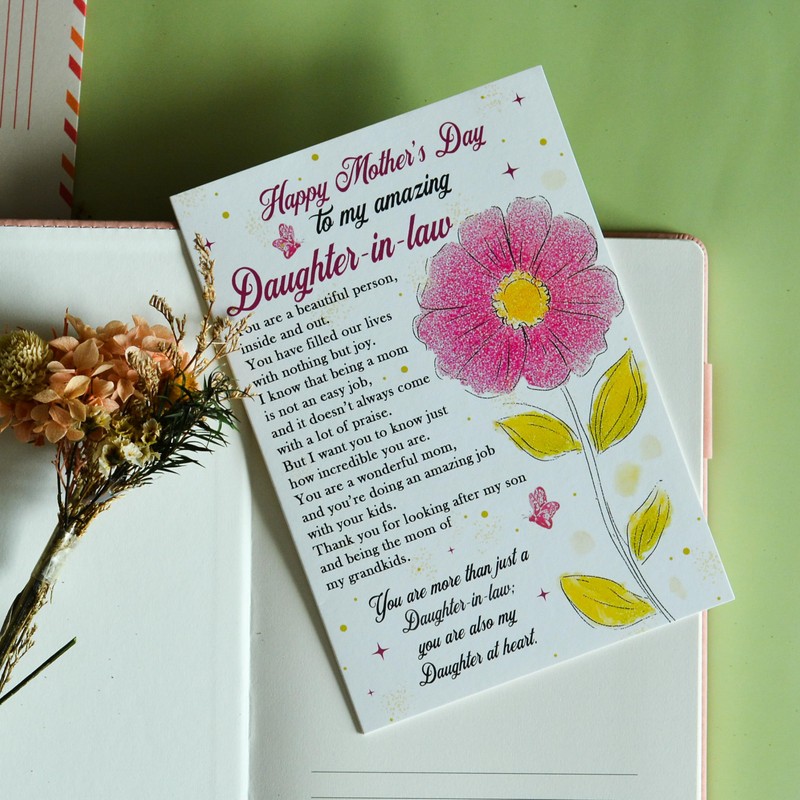 Happy Mother's Day
to my amazing
Daughter-in-law
You are a beautiful person,
inside and out.
You have filled our lives
with nothing but joy.
I know that being a mom
is not an easy job,
and it doesn't always come
with a lot of praise.
But I want you to know just
how incredible you are.
You are a wonderful mom,
and you're doing an amazing job
with your kids.
Thank you for looking after my son
and being the mom of
my grandkids.
You are more than just a
Daughter-in-law;
you are also my
Daughter at heart.